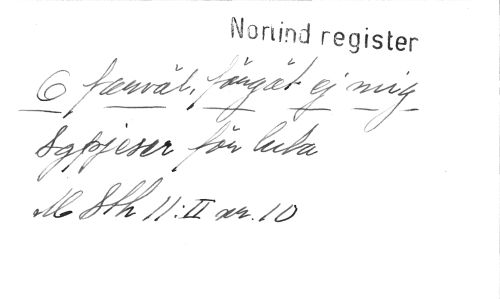 Nonind register
O farväl, förgät ej mig
8 gpjeser för luta
M Sth 11:II nr. 10